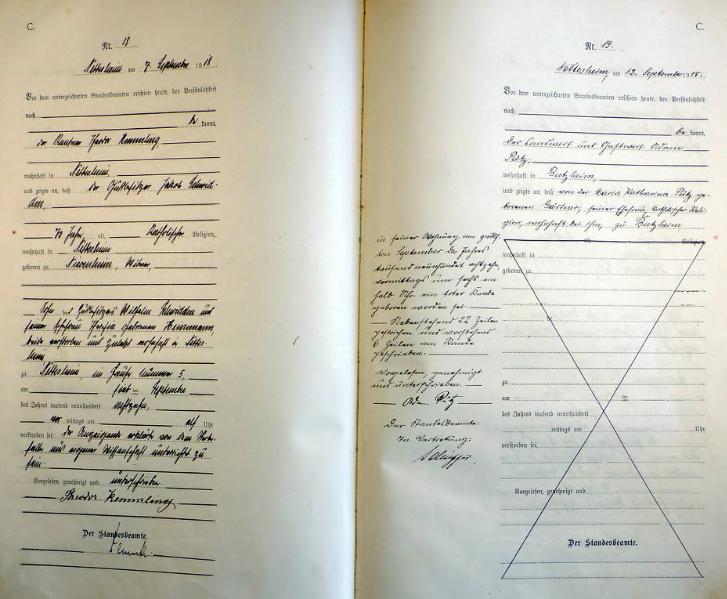 C.
Nr. 18
Nettesheim am 7. September 1918
Vor dem unterzeichneten Standesbeamten erschien heute, der Persönlichkeit
nach
be kannt,
der Rentner Theodor Kemmling
wohnhaft in Nettesheim,
und zeigte an, daß der Gutsbesitzer Jakob
70 Jahre alt, katholischer Religion,
wohnhaft in Nettesheim
geboren zu Nievenheim, Witwer,
Sohn Gutsbesitzers Wilhelm und
seiner Ehefrau geborenen
beide verstorben und zuletzt wohnhaft in Nettes-
heim
zu Nettesheim, im Hause Nummer 5,
am September
des Jahres tausend neunhundert achtzehn,
vor mittags um elf Uhr
verstorben sei. der Anzeigende erklärte von dem Sterbe-
falle aus eigener Wissenschaft unterrichtet zu
sein
Vorgelesen, genehmigt und unterschrieben
Theodor Kemmling
Der Standesbeamte.
C.
Nr. 19.
Nettesheim, am 12. September 1918.
Vor dem unterzeichneten Standesbeamten erschien heute, der Persönlichkeit
nach
be kannt,
der Landwirt und Gastwirt Adam
Pütz,
wohnhaft in Butzheim,
und zeigte an, daß von der Maria Katharina Pütz ge-
borenen Gärtner, seiner Ehefrau, katholischer Reli-
gion, wohnhaft bei ihm, zu Butzheim
alt, Religion,
wohnhaft in
geboren zu
zu
am
des Jahres tausend neunhundert
mittags um Uhr
verstorben sei.
Vorgelesen, genehmigt und
Der Standesbeamte.
in seiner Wohnung am
ten September des Jahres
tausend neunhundert achtzehn,
vormittags um sechs ein
halb Uhr ein toter Knabe
geboren worden sei.
Nebenstehend 22 Zeilen
gestrichen und vorstehend
6 Zeilen am Rande
geschrieben.
Vorgelesen, genehmigt
und unterschrieben.
Adam Pütz
Der Standesbeamte
In Vertretung: